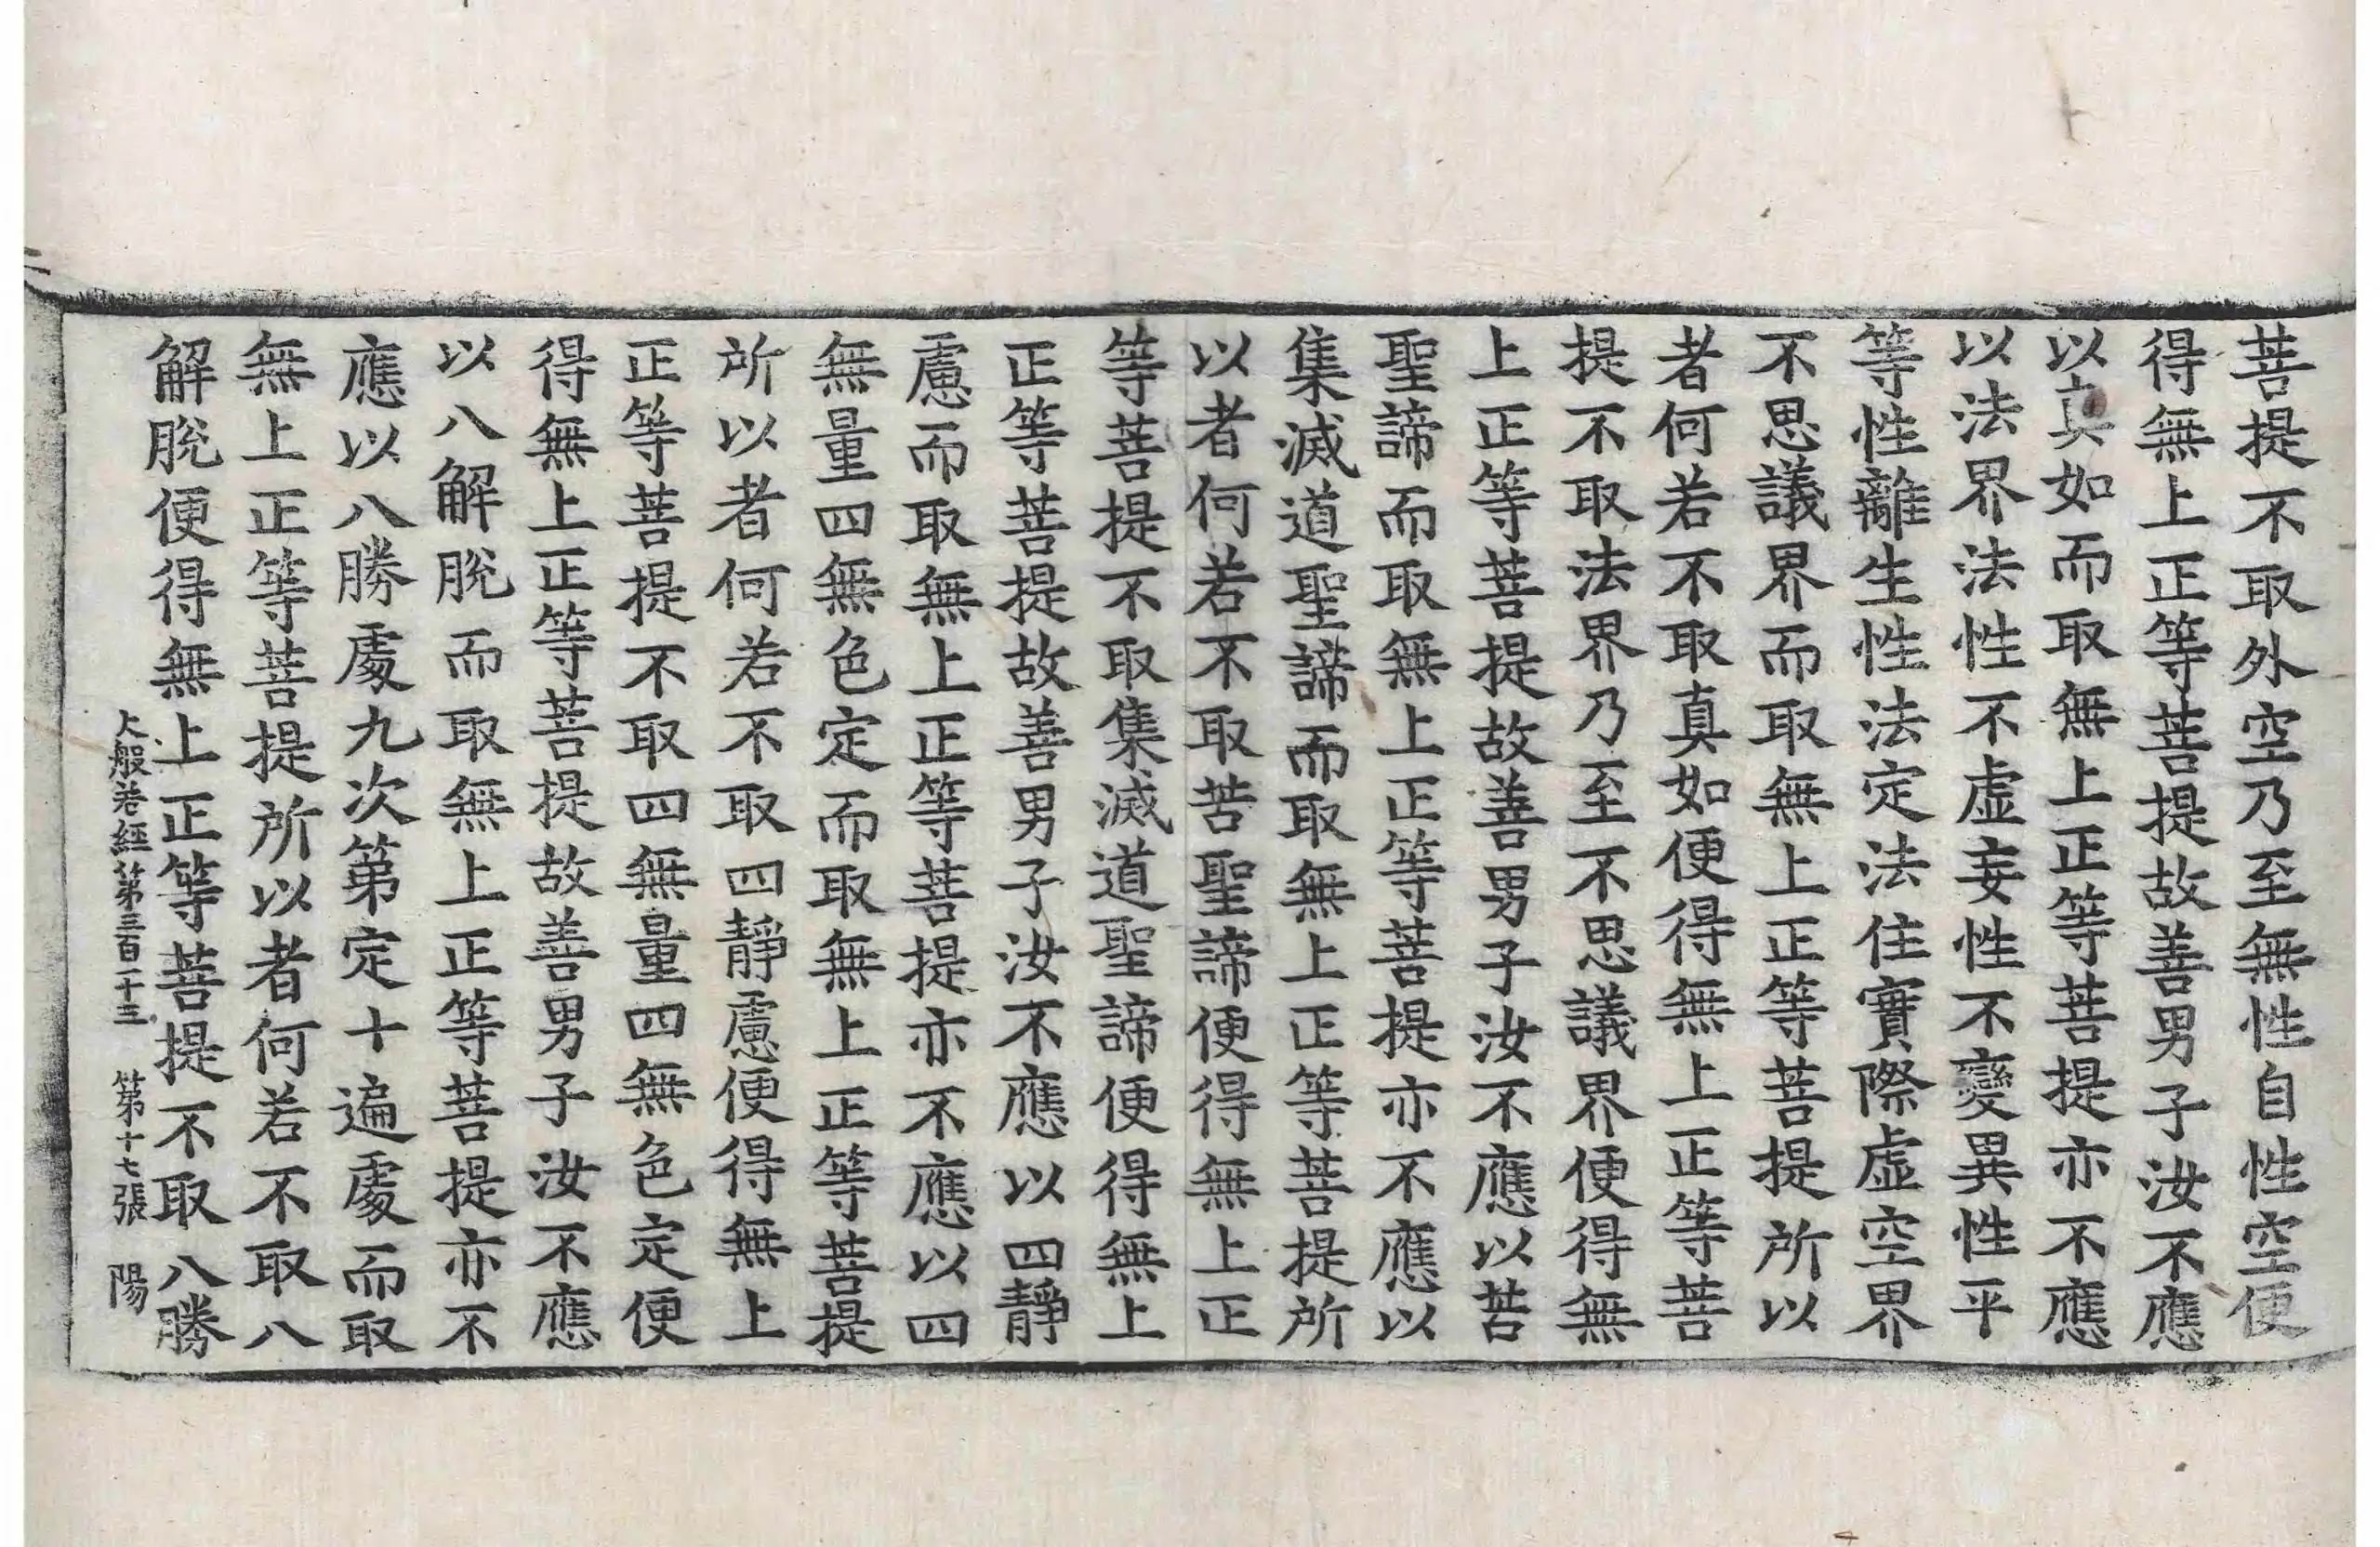 菩提不取外空乃至無性自性空便
得無上正等菩提故善男子汝不應
以真如而取無上正等菩提亦不應
以法界法性不虛妄性不變異性平
等性離生性法定法住實際虛空界
不思議界而取無上正等菩提所以
者何若不取真如便得無上正等菩
提不取法界乃至不思議界便得無
上正等菩提故善男子汝不應以苦
聖諦而取無上正等菩提亦不應以
集滅道聖諦而取無上正等菩提所
以者何若不取苦聖諦便得無上正
等菩提不取集滅道聖諦便得無上
正等菩提故善男子汝不應以四靜
慮而取無上正等菩提亦不應以四
無量四無色定而取無上正等菩提
所以者何若不取四靜慮便得無上
正等菩提不取四無量四無色定便
得無上正等菩提故善男子汝不應
以八解脫而取無上正等菩提亦不
應以八勝處九次第定十遍處而取
無上正等菩提所以者何若不取八
解脫便得無上正等菩提不取八勝
大般若經第三百十三 第十七張 陽